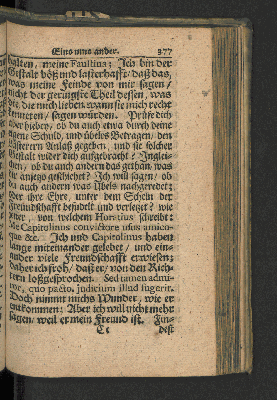 Eins umb ander. 377
halten, meine Faustine; Ich bin der
Gestalt böß und lasterhafft / daß das,
was meine Feinde von mir sagen/
nicht der geringste Theil dessen, was
die, die mich lieben wann sie mich recht
kenneten / sagen würden. Prüfe dich
aber hiebey, ob du auch etwa durch deine
eigene Schuld, und übeles Betragen, den
Lästerern Anlaß gegeben, und sie solcher
Gestalt wider dich aufgebracht? Inglei-
chen, ob du auch andern das gethan, was
dir anjetzo geschiehet? Ich will sagen / ob
du auch andern was Übels nachgeredet;
oder ihre Ehre, unter dem Schein der
Freundschafft besudelt und verletzt? wie
, von welchem Horatius schreibt:
Me Capitolinus convictore usus amico-
que &c. Ich und Capitolinus haben
lange miteinander gelebet / und ein-
ander viele Freundschafft erwiesen;
daher ich froh / daß er / von den Rich-
tern loßgesprochen. Sed tamen admi-
ror, quo pacto, judicium illud fugerit.
Doch nimmt michs Wunder, wie er
entkommen: Aber ich will nicht mehr
sagen, weil er mein Freund ist. Fin-
dest